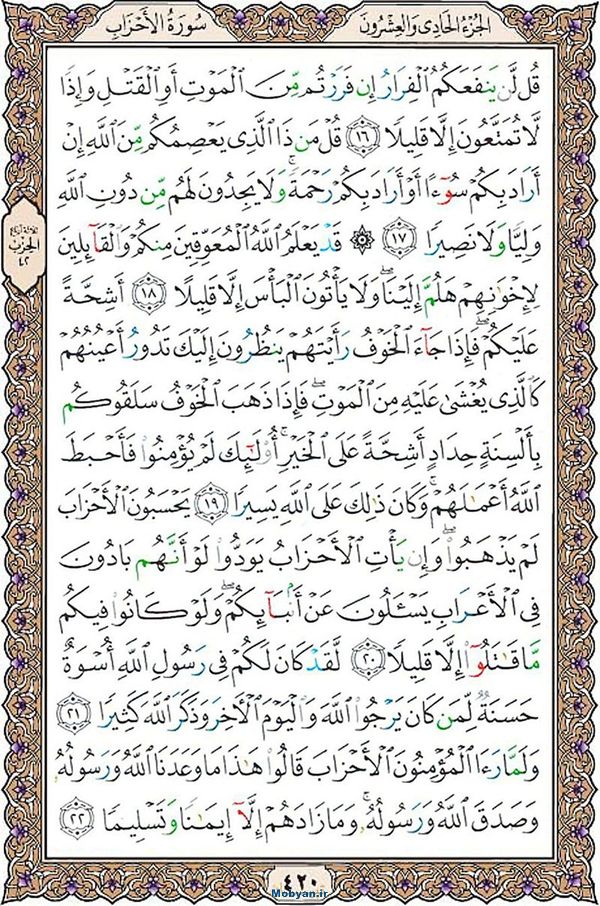 الجُزْءُ الحَادِى وَالعِشْرُونَ
سُورَةُ الأَحْزَابِ
قُل لَّن يَنفَعَكُمُ الْفِرَارُ إِن فَرَرْتُم مِّنَ الْمَوْتِ أَوِ الْقَتْلِ وَإِذًا
لَّا تُمَتَّعُونَ إِلَّا قَلِيلًا ١٦ قُلْ مَن ذَا الَّذِى يَعْصِمُكُم مِّنَ اللَّهِ إِنْ
أَرَادَ بِكُمْ سُوٓءًا أَوْ أَرَادَ بِكُمْ رَحْمَةً ۚ وَلَا يَجِدُونَ لَهُم مِّن دُونِ اللَّهِ
وَلِيًّا وَلَا نَصِيرًا ١٧ ۞ قَدْ يَعْلَمُ اللَّهُ الْمُعَوِّقِينَ مِنكُمْ وَالْقَآئِلِينَ
لِإِخْوَٰنِهِمْ هَلُمَّ إِلَيْنَا ۖ وَلَا يَأْتُونَ الْبَأْسَ إِلَّا قَلِيلًا ١٨ أَشِحَّةً
عَلَيْكُمْ ۖ فَإِذَا جَآءَ الْخَوْفُ رَأَيْتَهُمْ يَنظُرُونَ إِلَيْكَ تَدُورُ أَعْيُنُهُمْ
كَالَّذِى يُغْشَىٰ عَلَيْهِ مِنَ الْمَوْتِ ۖ فَإِذَا ذَهَبَ الْخَوْفُ سَلَقُوكُم
بِأَلْسِنَةٍ حِدَادٍ أَشِحَّةً عَلَى الْخَيْرِ ۚ أُوْلَٰٓئِكَ لَمْ يُؤْمِنُوا۟ فَأَحْبَطَ
اللَّهُ أَعْمَٰلَهُمْ ۚ وَكَانَ ذَٰلِكَ عَلَى اللَّهِ يَسِيرًا ١٩ يَحْسَبُونَ الْأَحْزَابَ
لَمْ يَذْهَبُوا۟ ۖ وَإِن يَأْتِ الْأَحْزَابُ يَوَدُّوا۟ لَوْ أَنَّهُم بَادُونَ
فِى الْأَعْرَابِ يَسْـَٔلُونَ عَنْ أَنۢبَآئِكُمْ ۖ وَلَوْ كَانُوا۟ فِيكُم
مَّا قَٰتَلُوٓا۟ إِلَّا قَلِيلًا ٢٠ لَّقَدْ كَانَ لَكُمْ فِى رَسُولِ اللَّهِ أُسْوَةٌ
حَسَنَةٌ لِّمَن كَانَ يَرْجُوا۟ اللَّهَ وَالْيَوْمَ الْأَخِرَ وَذَكَرَ اللَّهَ كَثِيرًا ٢١
وَلَمَّا رَءَا الْمُؤْمِنُونَ الْأَحْزَابَ قَالُوا۟ هَٰذَا مَا وَعَدَنَا اللَّهُ وَرَسُولُهُۥ
وَصَدَقَ اللَّهُ وَرَسُولُهُۥ ۚ وَمَا زَادَهُمْ إِلَّآ إِيمَٰنًا وَتَسْلِيمًا ٢٢
ثلاثة أرباع
الحِزب
٤٢
٤٢٠
Mobyan.ir